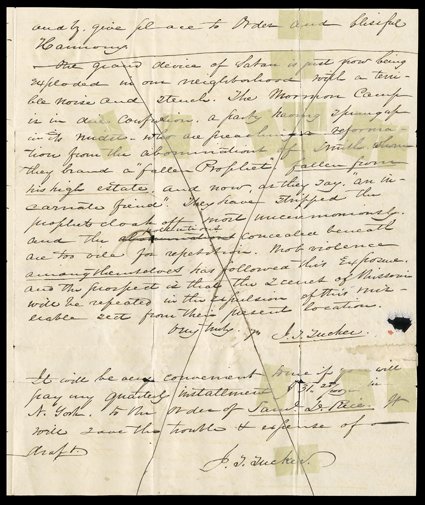 and give place to Order and blissful
Harmony
One grand device of Satan is just now being
exploded in our neighborhood with a terri-
ble noise and stench. The Mormon Camp
is in dire confusion. a party having sprung up
in its midst - who are preaching reforma-
tion from the abominations of Smith whom
they brand a fallen Prophet" fallen from
his high estate and now, as they say, "an in-
carnate fiend" They have stripped the
prophets cloak off most uncermoniously.
and the concealed beneath
are too vile for repetition. Mob violence
among themselves has followed this Expose.
and the prospect is that the Scenes of Missouri
will be repeated in the expulsion of this mis-
erable sect from their present location.
Very truly yrs J. T. Tucker.
It will be any convenient time if you will
pay my quarterly installment $ in
N. York. to the order of Saml D. Rice. It
will save the trouble & expense of a
draft.
J. T. Tucker.